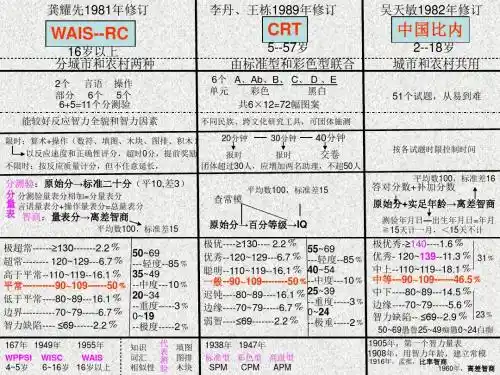 龚耀先1981年修订
WAIS--RC
16岁以上
分城市和农村两种
2个 言语 操作
部分 6个 5个
6+5=11个分测验
能较好反应智力全貌和智力因素
限时:算术+操作(数符、填图、木块、图排、积木)
以反应速度和正确性评分,超时0分,提前奖励
不限时:按反应质量评分,但不任意延长,
分测验:原始分→标准二十分(平10,差3)
分量表
分测验量表分相加=分量表分
言语量表分+操作量表分=总量表分
智商:量表分→离差智商
平均数100,标准差15
极超常------≥130-------2.2%
超常-------- 120~129---6.7%
高于平常--110~119--16.1%
平常---------90~109------50%
低于平常---80~89---16.1%
边界--------70~79----6.7%
智力缺陷---- ≤69------2.2%
50~69
---轻度--85%
35~49
--中度---10%
20~34
--重度-----3%
0~19
--极度-----2%
167年 1949年 1955年
WPPSI WISC WAIS
4~5岁 6~16岁 16岁以上
知识 填图
词汇 图排
相似性 木块
代表测验
李丹、王栋1989年修订
CRT
5--57岁
由标准型和彩色型联合
6个 A、Ab、B、C、D、E
单元 彩色 黑白
共6×12=72幅图案
不同民族、跨文化研究工具,可团体施测
20分钟 30分钟 40分钟
报时 报时 交卷
团体超过30人,应增加两名助理,不超50人
平均数100,标准差15
查常模
原始分→百分等级→IQ
极优-----≥130------2.2%
优秀--120~129---6.7%
聪明--110~119--16.1%
一般--90~109------50%
迟钝---80~89---16.1%
边缘----70~79----6.7%
弱智-----≤69------2.2%
55~69
---轻度--85%
40~54
--中度---10%
25~39
--重度----3%
0~24
--极重-----2%
1938年 1947年
标准型 彩色型 高级型
SPM CPM APM
吴天敏1982年修订
中国比内
2--18岁
城市和农村共用
51个试题,从易到难
按各试题时限控制时间
平均数100,标准差16
答对分数+补加分数
原始分+实足年龄→离差智商
测验年月日—出生年月日=年月
≥15天计一月,<15天不计
极优秀-≥140-----1.6%
优秀- 120~139--11.3%
中上---110~119--18.1%
中等---90~109------46.5%
中下----80~89---14.5%
边缘-----70~79----5.6%
智力缺陷--≤69---2.9%
31%
23%
50~69愚鲁25~49痴愚0~24白痴
1905年,第一个智力量表
1908年,用智力年龄,建立常模
1916年,孟推,比率智商
1960年,离差智商